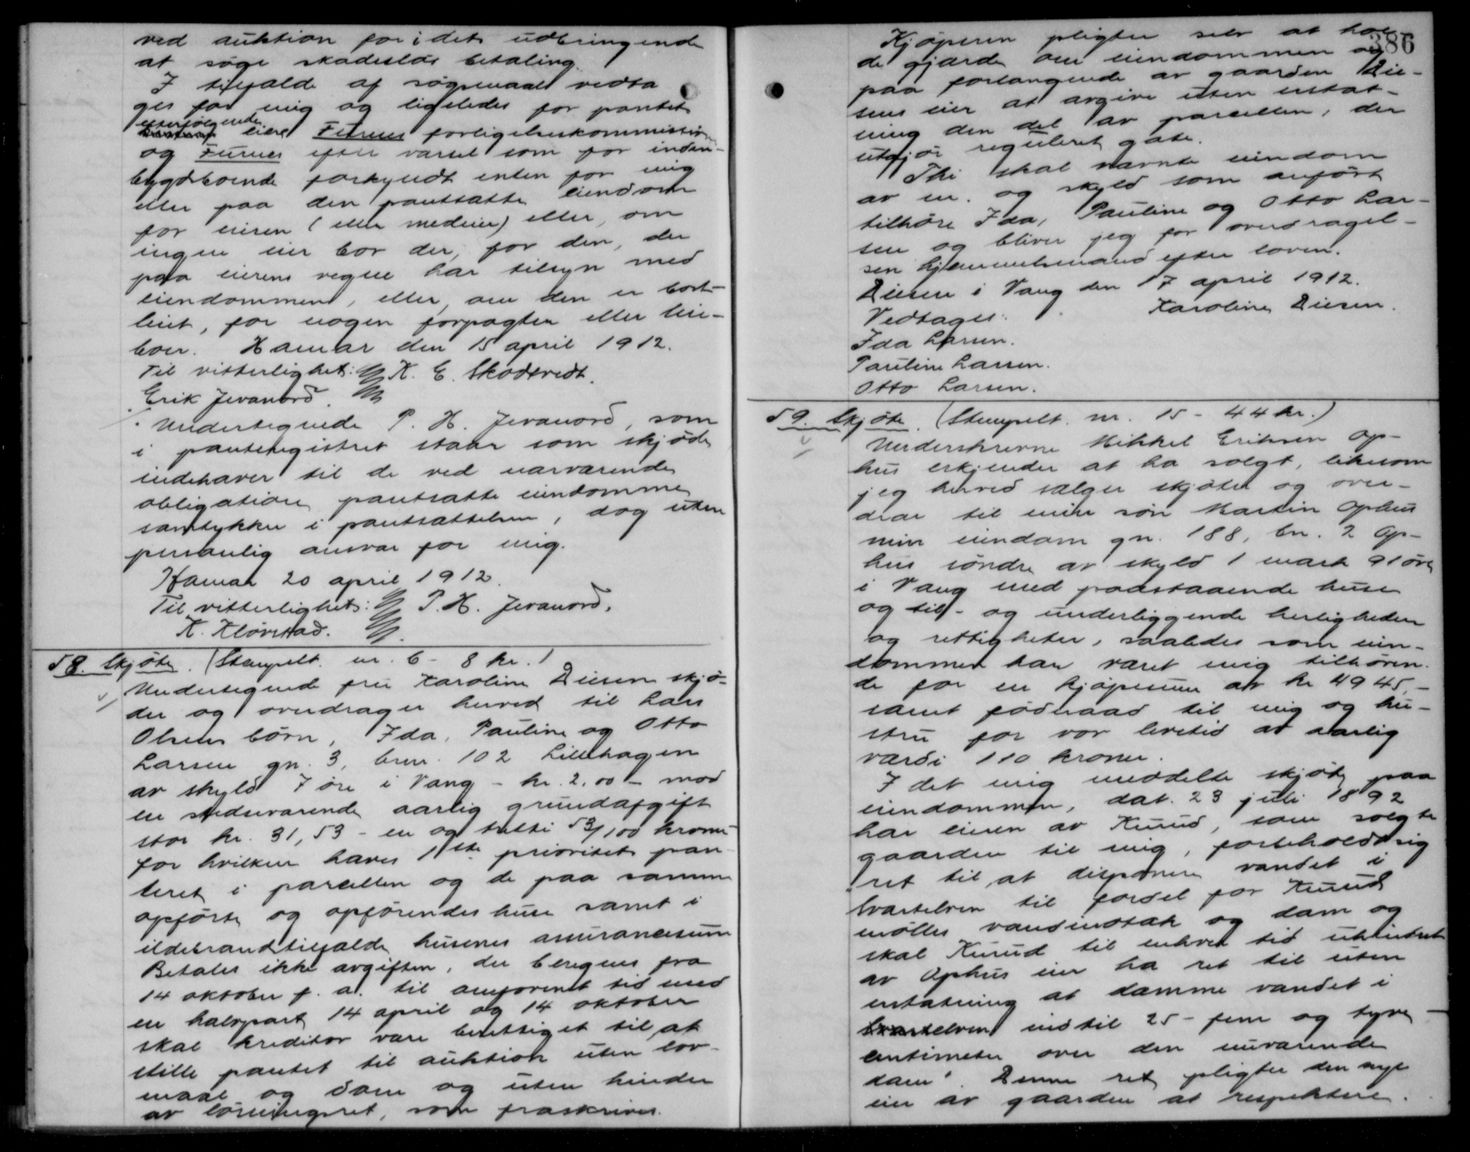 ved auktion for i det udbringende
at søge skadesløs betaling.
I tilfælde af søgsmaal vedta
ges for mig og ligeledes for pantets
efterfølgende
eiere Furnes forligelseskommission
og Furnes efter varsel som for inden-
bygdboende forkyndt enten for mig
eller paa den pantsatte eiendom
for eieren (eller medeier) eller, om
ingen eier bor der, for den, der
paa eierens vegne har tilsyn med
eiendommen, eller, om den er bort-
leiet, for nogen forpagter eller lei-
boer. Hamar den 15 april 1912.
Til vitterlighet: K. E. Skodsvedt.
Erik Jevanord.
Undertegnede P. H. Jevanord, som
i panteregistret staar som skjøde
indehaver til de ved nærværende
obligation pantsatte eiendomme
samtykker i pantsættelsen, dog uten
personlig ansvar for mig.
Hamar 20 april 1912.
Til vitterlighet: P. H. Jevanord.
K. Kløvstad.
58. Skjøte. (Stempelt. nr. 6 - 8 kr.)
Undertegnede fru Karoline Diesen skjø-
der og overdrager herved til Lars
Olsens børn, Ida, Pauline og Otto
Larsen gn. 3, brn. 102 Lillehagen
av skyld 7 øre i Vang - kr. 2.00 - mod
en stedsevarende aarlig grundafgift
stor kr. 31,53 - en og tretti 53/100 kroner
for hvilken haves 1ste prioritets pan-
teret i parcellen og de paa samme
opførte og opførendes huse samt i
ildebrandtilfælde husenes assurancesum
Betales ikke avgiften, der beregnes fra
14 oktober f. a. til omforenet tid med
en halvpart 14 april og 14 oktober
skal kreditor være berettiget til at
stille pantet til auktion uten lov-
maal og dom og uten hinder
av løsningsret, som fraskrives.
386
Kjøperen pligter selv at hol-
de gjærde om eiendommen og
paa forlangende av gaarden Die-
sens eier at avgive uten erstat-
ning den del av parcellen, der
utgjør reguleret gate.
Thi skal nævnte eiendom
av nr. og skyld som anført
tilhøre Ida, Pauline og Otto Lar-
sen og bliver jeg for overdragel-
sen hjemmelsmand efter loven.
Diesen i Vang den 17 april 1912.
Vedtages: Karoline Diesen.
Ida Larsen.
Pauline Larsen.
Otto Larsen.
59. Skjøte. (Stempelt. nr. 15 - 44 kr.)
Underskrevne Mikkel Eriksen Op-
hus erkjender at ha solgt, likesom
jeg herved sælger skjøter og over-
drar til min søn Martin Ophus
min eiendom gn. 188, bn. 2 Op-
hus søndre av skyld 1 mark 91 øre
i Vang med paastaaende huse
og til- og underliggende herligheder
og rettigheter, saaledes som eien-
dommen har været mig tilhøren-
de for en kjøpesum av kr 4945,-
samt føderaad til mig og hu-
stru for vor levetid av aarlig
værdi 110 kroner.
I det mig meddelte skjøte paa
eiendommen, dat. 23 juli 1892
har eieren av Kurud, som solgte
gaarden til mig, forbeholdt sig
ret til at disponere vandet i
Svartelven til fordel for Kurud
mølles vandindtak og dam og
skal Kurud til enhver tid uhindret
av Ophus eier ha ret til uten
erstatning at dæmme vandet i
Svartelven indtil 25 - fem og tyve
centimeter over den nuværende
dam". Denne ret pligter den nye
eier av gaarden at respektere.